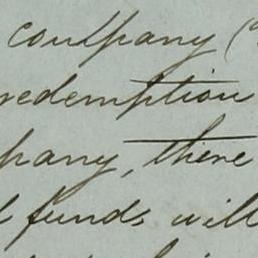 company (
redemption
pany, there
funds will